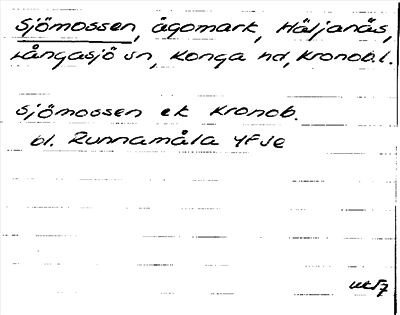 Sjömossen, ägomark, Häljanäs,
Långasjö sn, Konga hd, Kronob.l.
Sjömossen ek Kronob.
bl. Runnamåla 4F5e